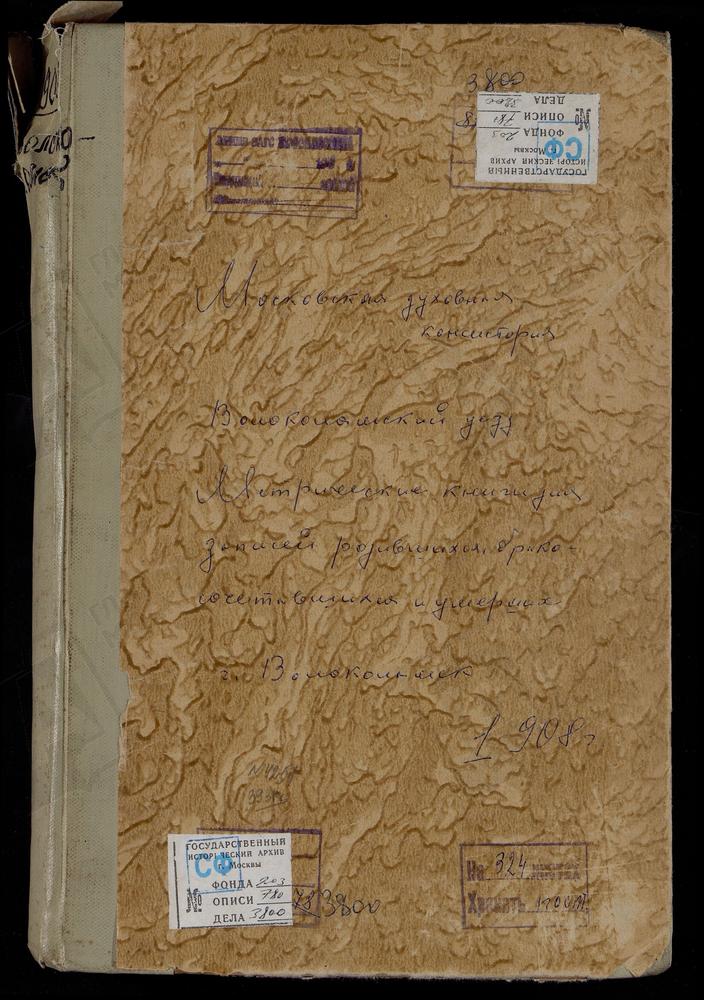 3800
№
ДЕЛА 3800
ОПИСИ 780
ФОНДА 203
г. Москвы
СФ
ИСТОРИЧЕСКИЙ АРХИВ
ГОСУДАРСТВЕННЫЙ
Московская духовная
консистория
Волоколамский уезд
Метрические книги для
записей родившихся, брако-
сочетавшихся и умерших
г. Волоколамск
1908 г
ГОСУДАРСТВЕННЫЙ
ИСТОРИЧЕСКИЙ АРХИВ
г. Москвы
СФ
ФОНДА 203
№ ОПИСИ 780
ДЕЛА 3800
78 3800
На 324
Хранить